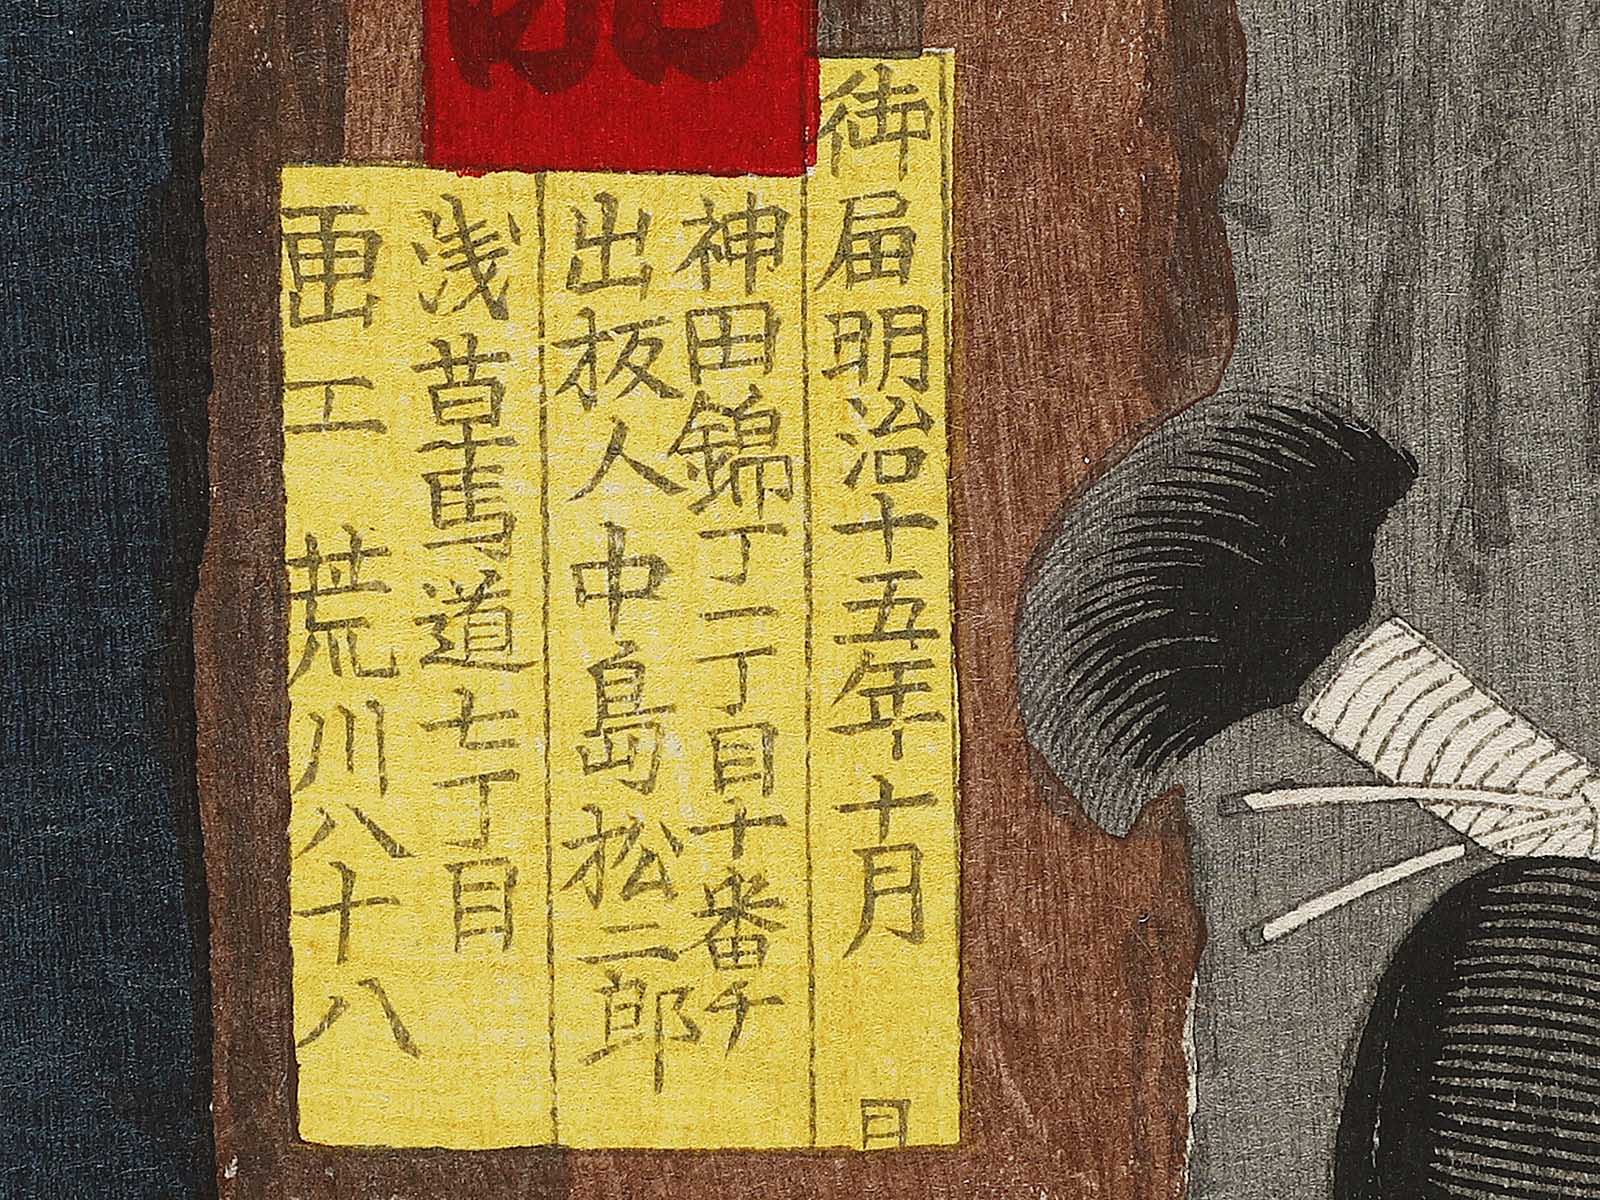 御届明治十五年十月　日
神田錦丁一丁目十番チ
出板人中島松二郎
浅草馬道七丁目
画工 荒川八十八